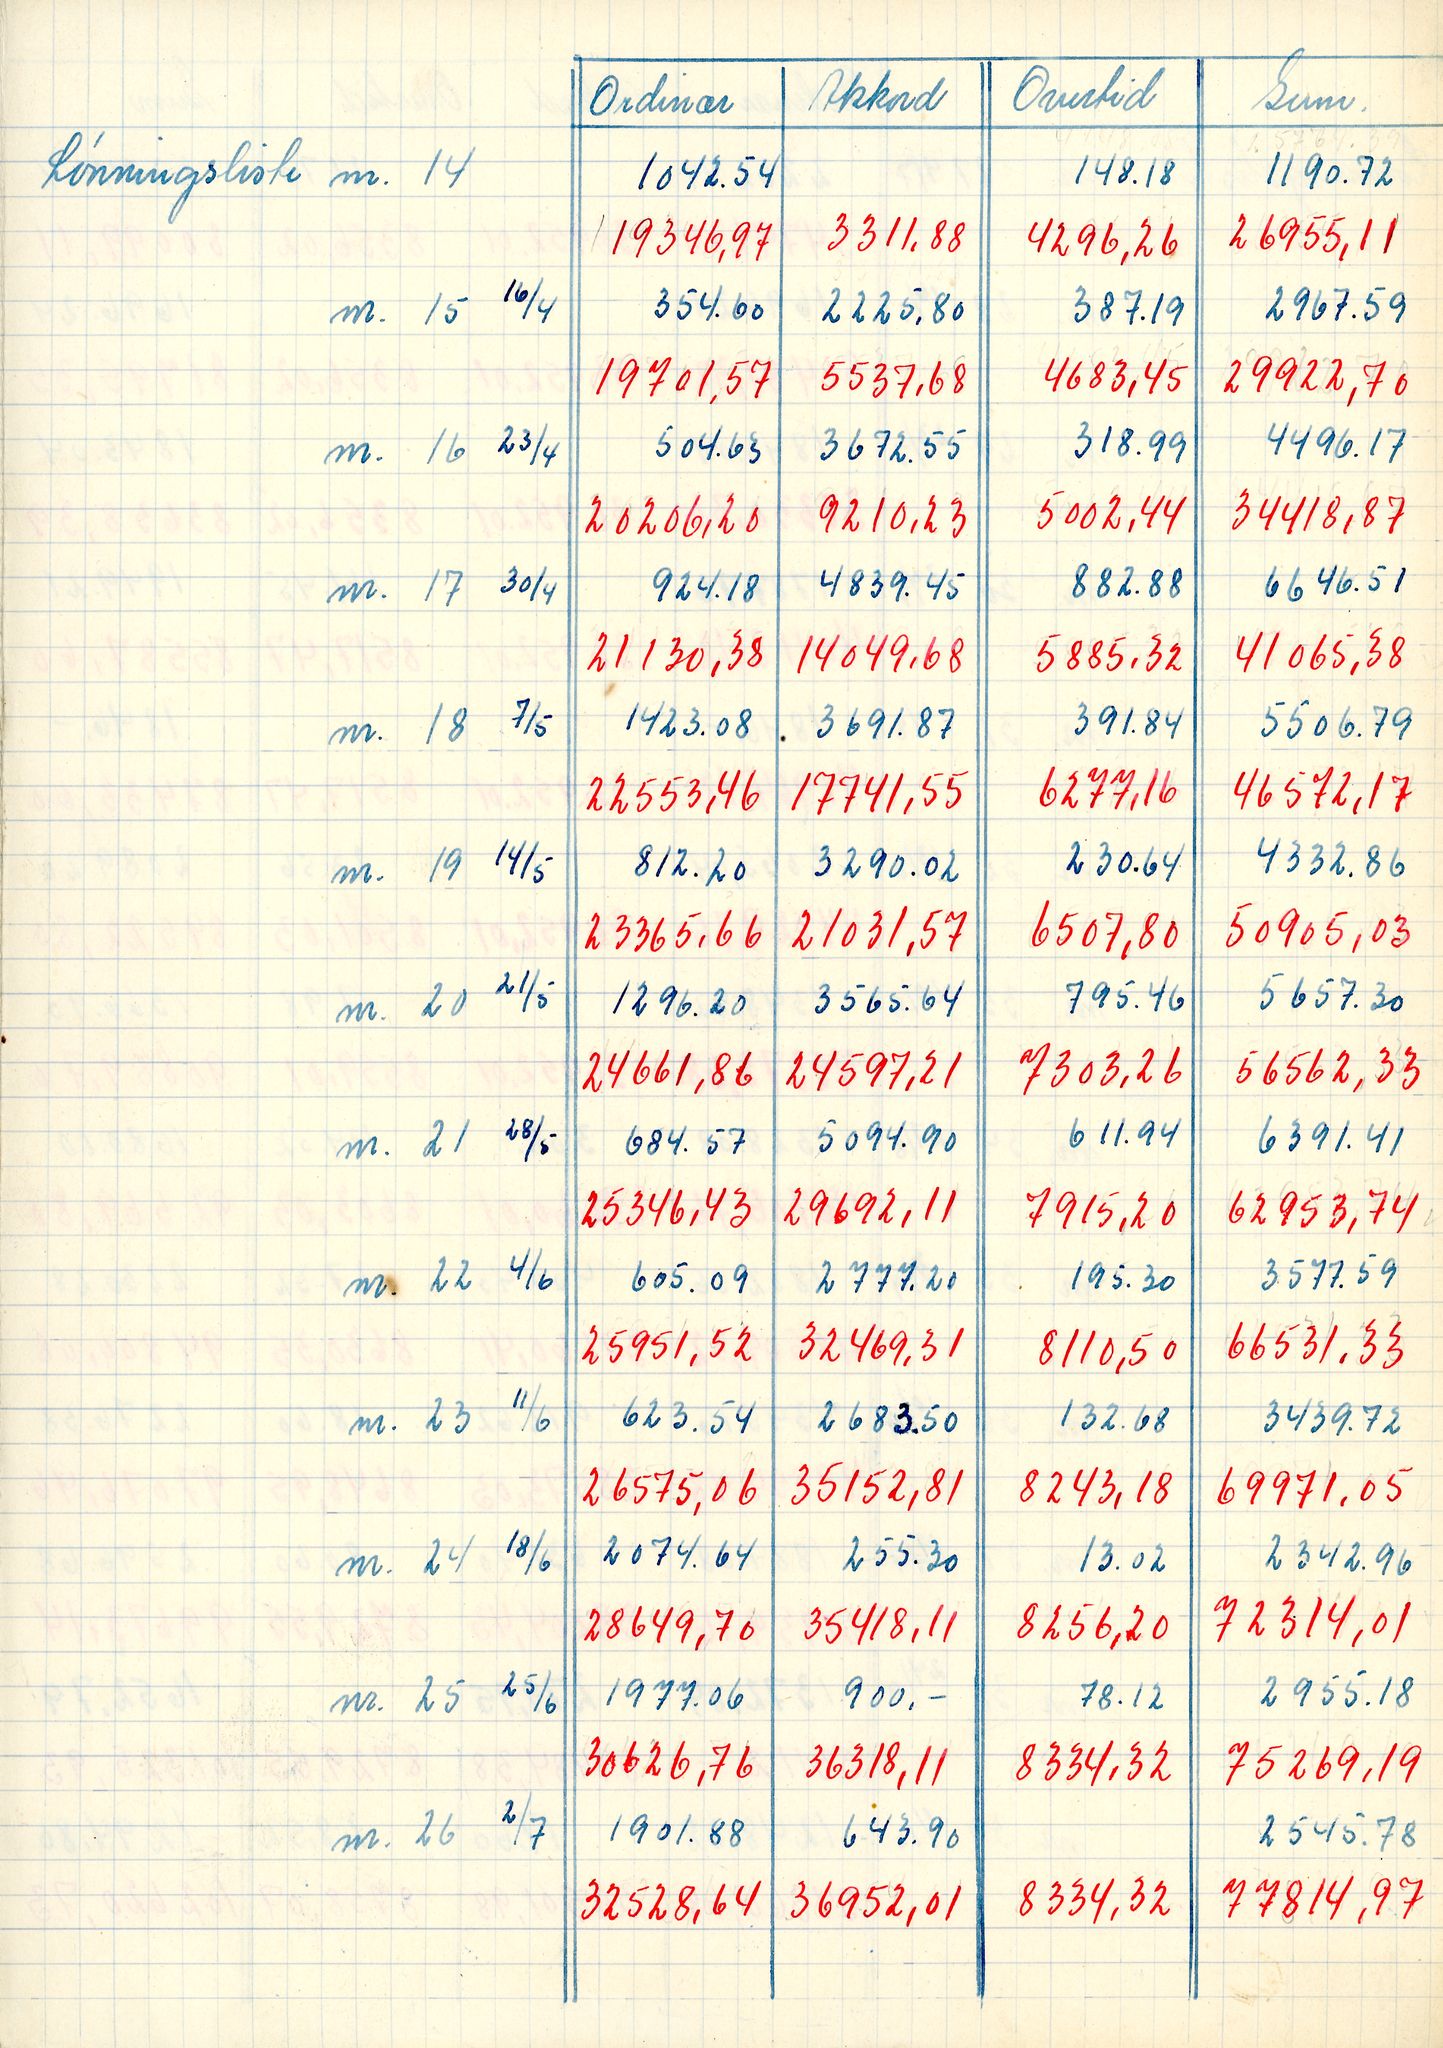 Ordinær Akkord Overtid Sum.
Lønningsliste nr. 14 1042.54 148.18 1190.72
19346,97 3311.88 4296,26 26955,11
nr. 15 16/4 354.60 2225,80 387.19 2967.59
19701,57 5537,68 4683,45 29922,70
nr. 16 23/4 504.63 3672.55 318.99 4496.17
20206,20 9210,23 5002,44 34418,87
nr. 17 30/4 924.18 4839.45 882.88 6646.51
21130,38 14049.68 5885.32 41065,38
nr. 18 7/5 1423.08 3691.87 391.84 5506.79
22553,46 17741,55 6277,16 46572,17
nr. 19 14/5 812.20 3290.02 230.64 4332.86
23365.66 21031,57 6507,80 50905,03
nr. 20 21/5 1296.20 3565.64 795.46 5657.30
24661,86 24597,21 7303,26 56562,33
nr. 21 28/5 684.57 5094.90 611.94 6391.41
25346,43 29692,11 7915,20 62953,74
nr. 22 4/6 605.09 2777.20 195.30 3577.59
25951,52 32469,31 8110,50 66531,33
nr. 23 11/6 623.54 2683.50 132.68 3439.72
26575,06 35152,81 8243,18 69971.05
nr. 24 18/6 2074.64 255.30 13.02 2342.96
28649,70 35418,11 8256,20 72314,01
nr. 25 25/6 1977.06 900.- 78.12 2955.18
30626,76 36318,11 8334,32 75269,19
nr. 26 2/7 1901.88 643.90 2545.78
32528,64 36952,01 8334,32 77814,97